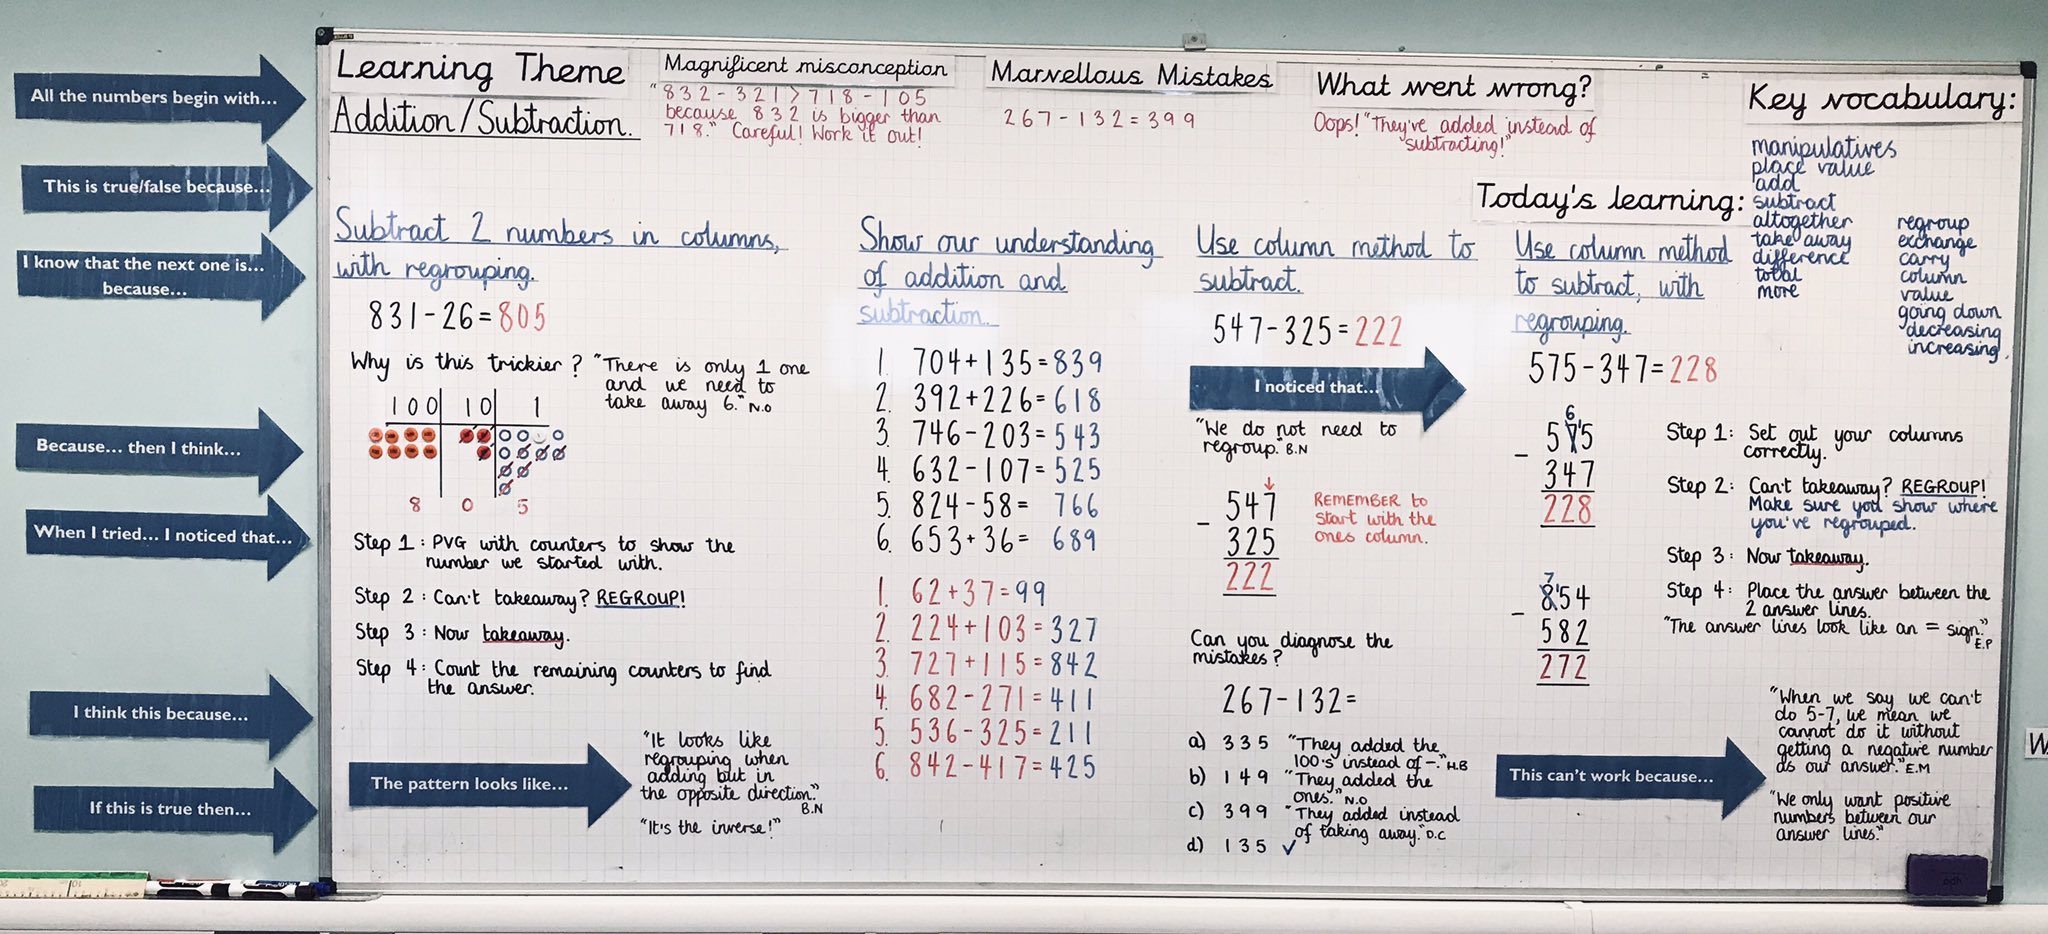 All the numbers begin with...
This is true/false because...
I know that the next one is...
because...
Because... then I think...
When I tried... I noticed that...
I think this because...
If this is true then...
Learning Theme
Addition/Subtraction.
Magnificent misconception
"832-321>718-105
because 832 is bigger than
718." Careful! Work it out!
Marvellous Mistakes
267-132=399
What went wrong?
Oops! "They've added instead of
subtracting!"
Key vocabulary:
manipulatives
place value
add
subtract
altogether
take away
difference
total
more
regroup
exchange
carry
column
value
going down
decreasing
increasing.
Subtract 2 numbers in columns,
with regrouping.
831-26=805
Why is this trickier? "There is only 1 one
and we need to
take away 6." N.O
100 10 1
8 0 5
Step 1: PVG with counters to show the
number we started with.
Step 2: Can't takeaway? REGROUP!
Step 3: Now takeaway.
Step 4: Count the remaining counters to find
the answer.
The pattern looks like...
"It looks like
regrouping when
adding but in
the opposite direction."
B.N
"It's the inverse!"
Show our understanding
of addition and
subtraction.
1. 704+135=839
2. 392+226=618
3. 746-203=543
4. 632-107=525
5. 824-58= 766
6. 653+36= 689
1. 62+37=99
2. 224+103=327
3. 727+115=842
4. 682-271=411
5. 536-325=211
6. 842-417=425
Use column method to
subtract.
547-325=222
I noticed that...
"We do not need to
regroup." B.N
547
- 325
222
REMEMBER to
start with the
ones column.
Can you diagnose the
mistakes?
267-132=
a) 335 "They added the
100's instead of -." H.B
b) 149 "They added the
ones." N.O
c) 399 "They added instead
of taking away." D.C
d) 135 ✓
Today's learning:
Use column method
to subtract, with
regrouping.
575-347=228
6
57¹5
- 347
228
7
8¹54
- 582
272
Step 1: Set out your columns
correctly.
Step 2: Can't takeaway? REGROUP!
Make sure you show where
you've regrouped.
Step 3: Now takeaway.
Step 4: Place the answer between the
2 answer lines.
"The answer lines look like an = sign."
E.P
This can't work because...
"When we say we can't
do 5-7, we mean we
cannot do it without
getting a negative number
as our answer." E.M
"We only want positive
numbers between our
answer lines."